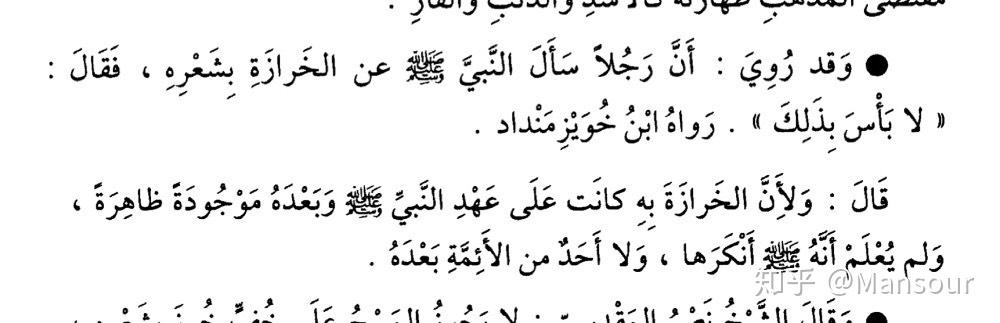 مقتضى المذهب طهارته كالأسد والذئب والفأر .
● وَقد رُوِيَ : أَنَّ رَجُلاً سَأَلَ النَّبيَّ ﷺ عن الخَرازَةِ بِشَعْرِهِ ، فَقَالَ :
« لا بَأْسَ بِذَلِكَ » . رَواهُ ابْنُ خُوَيْزِمَنْداد .
قَالَ : وَلأَِنَّ الخَرازَةَ بِهِ كانَت عَلَى عَهْدِ النَّبيِّ ﷺ وَبَعْدَهُ مَوْجُودَةً ظاهِرَةً ،
وَلم يُعْلَمْ أَنَّهُ ﷺ أَنْكَرَها ، وَلا أَحَدٌ من الأَئِمَّةِ بَعْدَهُ .
● وَقَالَ الشَّيْخُ نَصْرُ المَقْدِسيّ : لا يَجُوزُ المَسْحُ عَلَى خُفٍّ خُرِزَ بِشَعْرِهِ ،
知乎 @Mansour